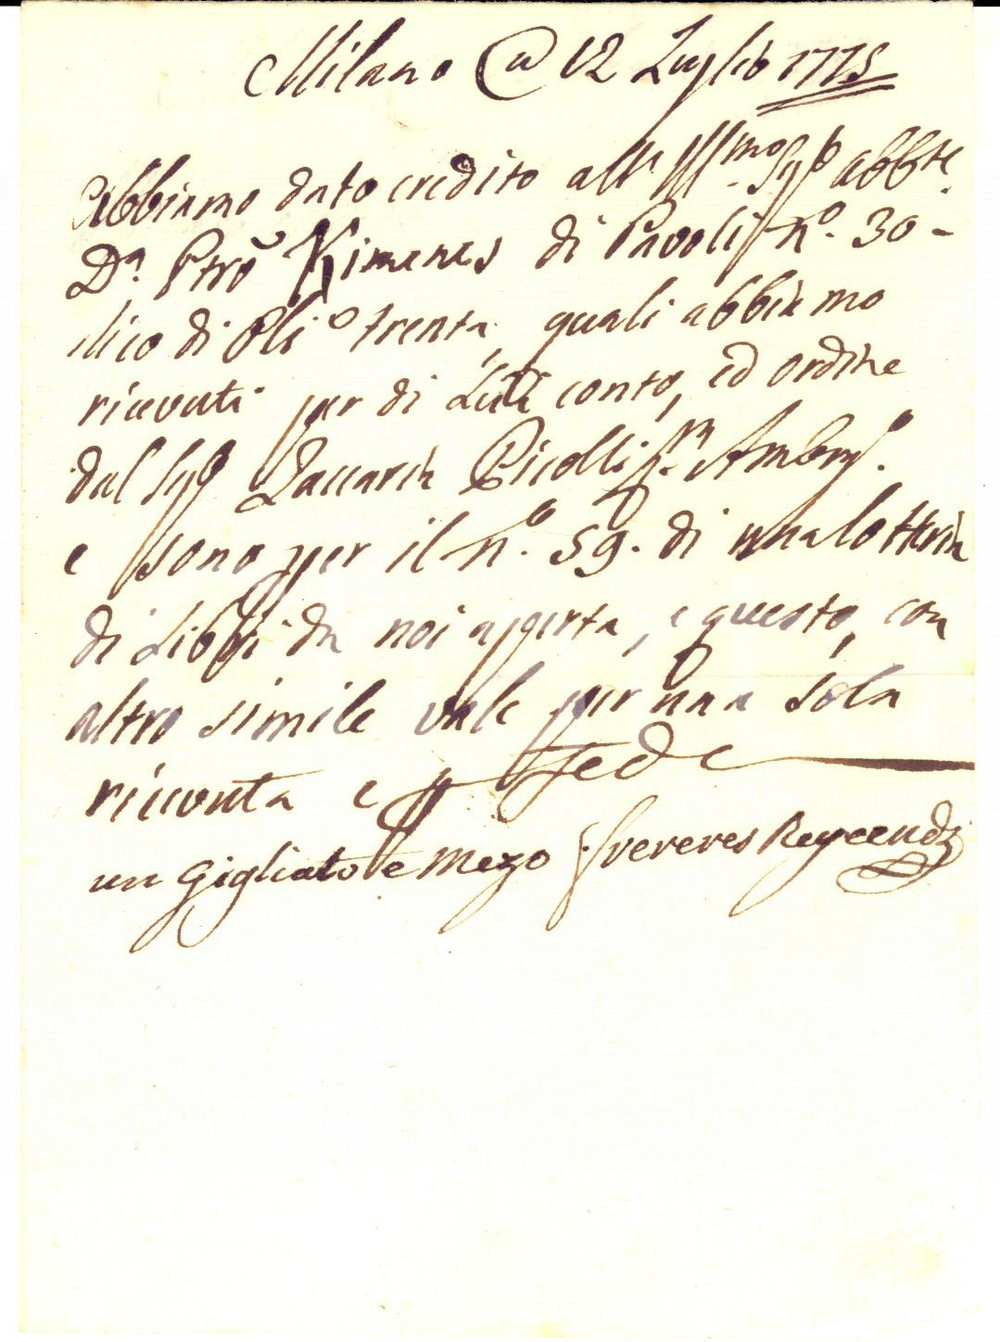 Milano @ 12 Luglio 1775
Abbiamo dato credito all' Ill.mo Sig.r abb.te
D.n Ptrõ Ximenes di Pavoli n.o 30 -
dico di Pli.o trenta, quali abbiamo
ricevuti per di Lui conto, ed ordine
dal Sig.r Zaccaria Picolli Ambrog.o
e sono per il n.o 59. di una lotteria
di Libri da noi aperta, e questo, con
altro simile vale per una sola
ricevuta e p fede
un Gigliato e mezo freres Reycends